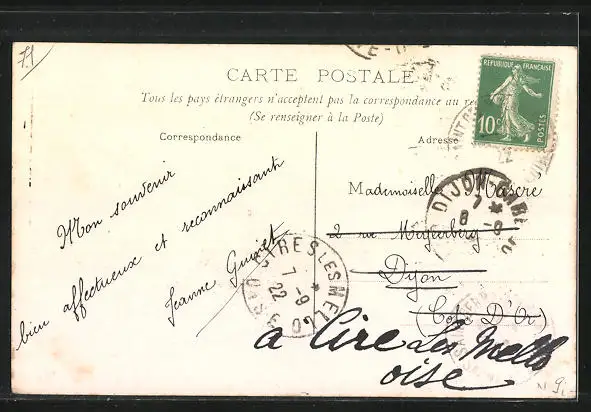 71
CARTE POSTALE
Tous les pays étrangers n'acceptent pas la correspondance au
(Se renseigner à la Poste)
Correspondance
Adresse
REPUBLIQUE FRANÇAISE
10c
POSTES
Mon souvenir
bien affectueux et reconnaissant
Jeanne
Mademoiselle Mascré
2 rue
Dijon
(Côte D'Or)
à Cire Les Mello
oise
CIRES LES MELLO
7 -9
22
DIJON
7
8 -9